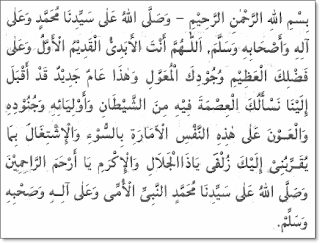 بِسْمِ اللهِ الرَّحْمٰنِ الرَّحِيْمِ – وَصَلَّى اللهُ عَلَى سَيِّدِنَا مُحَمَّدٍ وَعَلَى
آلِهِ وَأَصْحَابِهِ وَسَلَّمَ، اَللّٰـهُمَّ أَنْتَ الْأَبَدِيُّ الْقَدِيْمُ الْأَوَّلُ، وَعَلَى
فَضْلِكَ الْعَظِيْمِ وُجُوْدِكَ الْمُعَوَّلِ وَهٰذَا عَامٌ جَدِيْدٌ قَدْ أَقْبَلَ
إِلَيْنَا نَسْأَلُكَ الْعِصْمَةَ فِيْهِ مِنَ الشَّيْطَانِ وَأَوْلِيَائِهِ وَجُنُوْدِهِ
وَالْعَـوْنَ عَلَى هٰذِهِ النَّفْسِ الْأَمَارَةِ بِالسُّوْءِ وَالْإِشْتِغَالَ بِمَا
يُقَرِّبُنِيْ إِلَيْكَ زُلْفَى يَاذَاالْجَلَالِ وَالْإِكْرَمِ يَا أَرْحَمَ الرَّاحِمِيْنَ
وَصَلَّى اللهُ عَلَى سَيِّدِنَا مُحَمَّدٍ النَّبِيِّ الْأُمِّى وَعَلَى آلِـهِ وَصَحْبِهِ
وَسَلِّمْ.